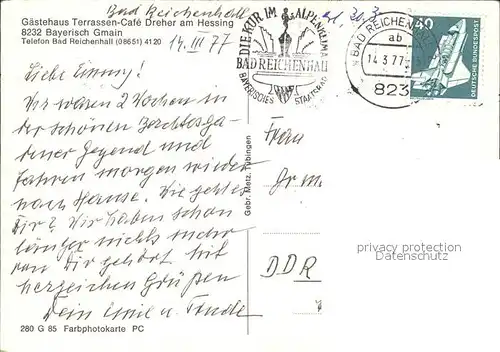 Bad Reichenhall
Gästehaus Terrassen-Café Dreher am Hessing
8232 Bayerisch Gmain
Telefon Bad Reichenhall (08651) 4120
14. III 77
DIE KUR IM ALPENKLIMA
BAD REICHENHALL
BAYERISCHES STAATSBAD
BAD REICHENHALL
ab
14.3.77
823
DEUTSCHE BUNDESPOST
Liebe Emmy!
Wir waren 2 Wochen in
der schönen Berchtesga-
dener Gegend und
fahren morgen wieder
nach Hause. Wie geht es
Dir? Wir haben schon
länger nichts mehr
von Dir gehört. Mit
herzlichen Grüßen
Dein Emil u.
Frau
DDR
Gebr. Metz, Tübingen
privacy protection
Datenschutz
280 G 85 Farbphotokarte PC